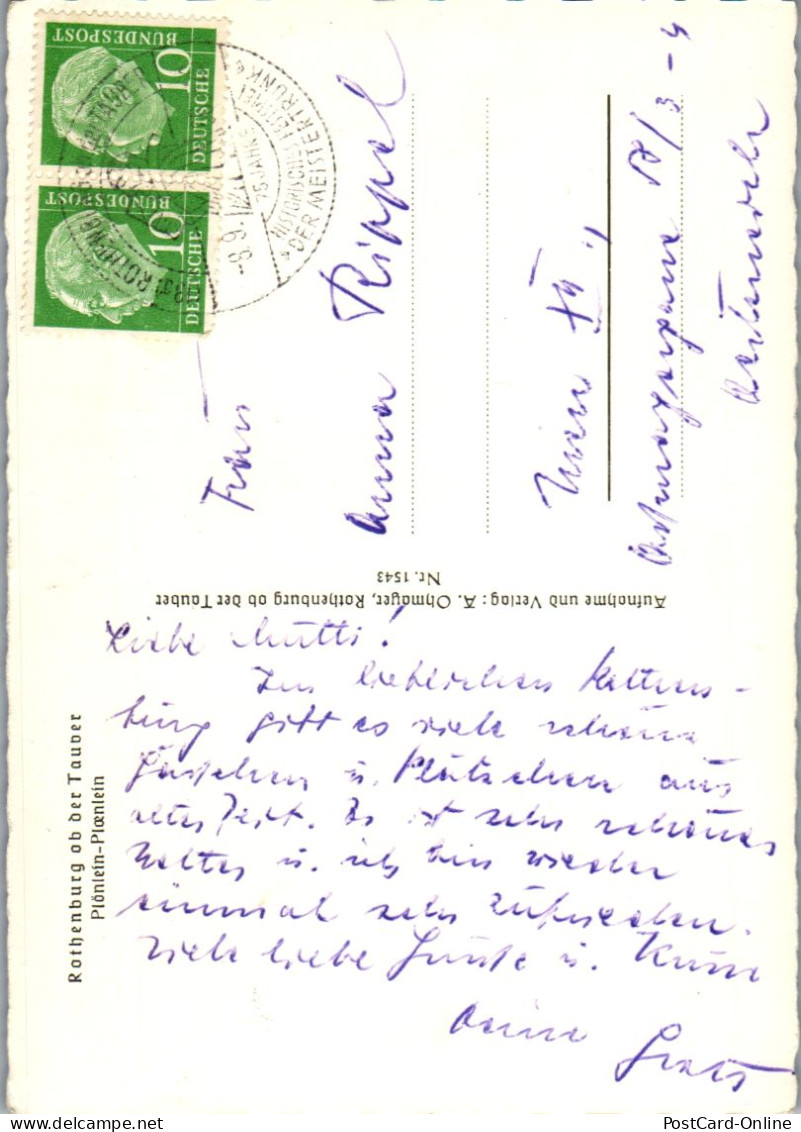 Rothenburg ob der Tauber
Plönlein-Plœnlein
Liebe Mutti!
Im lieblichen Rothen-
burg gibt es viele schöne
Gässchen u. Plätzchen aus
alter Zeit. Es ist sehr schönes
Wetter u. ich bin wieder
einmal sehr zufrieden.
Viele liebe Grüße u. Küsse
Deine
Aufnahme und Verlag: A. Ohmayer, Rothenburg ob der Tauber
Nr. 1543
DEUTSCHE
BUNDESPOST
10
DEUTSCHE
BUNDESPOST
10
ROTHENBURG OB DER TAUBER
75 JAHRE
HISTORISCHES FESTSPIEL
* DER MEISTERTRUNK *
-8.6.
Frau
Anna Rippel
Wien
Österreich
PostCard-Online